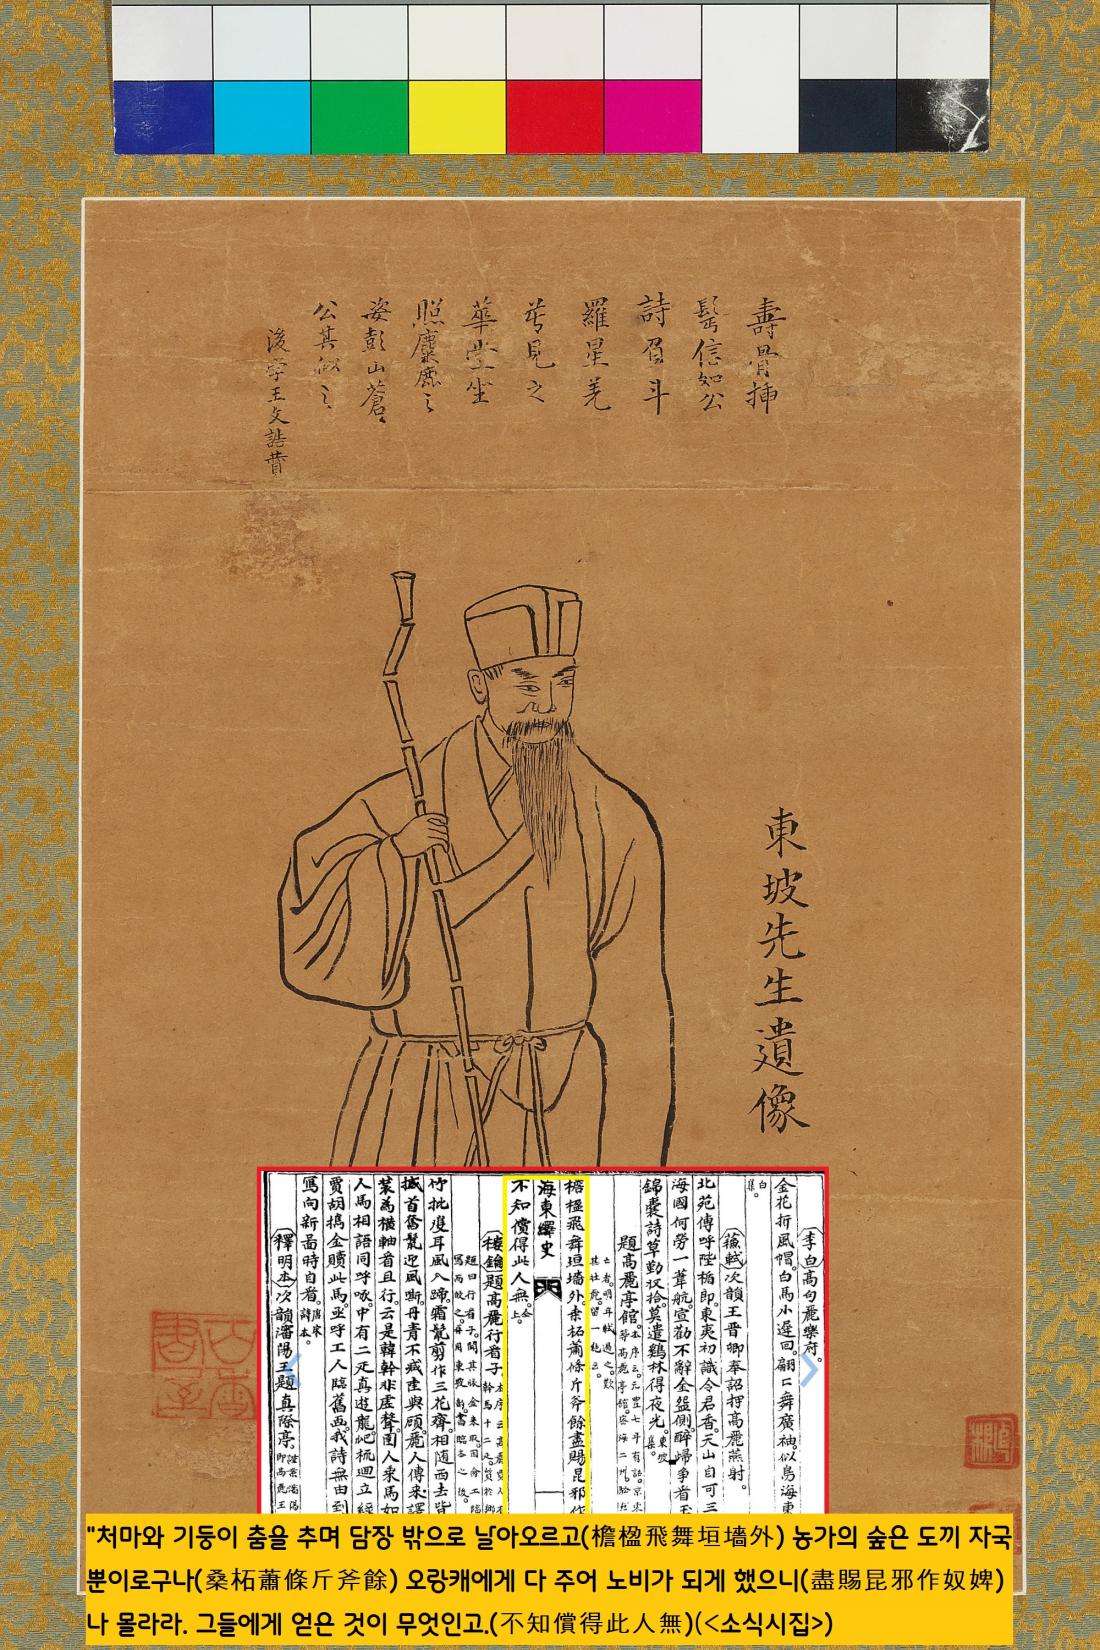 壽骨插
信如公
詩眉斗
羅星
見之
華堂坐
照麋之
姿彭山蒼〻
公其似之
後學王文誥贊
東坡先生遺像
李白高句麗樂府。
金花折風帽。白馬小遲回。翩〻舞廣袖。似鳥海東
白集。
蘇軾次韻王晉卿奉詔押高麗燕射。
北苑傳呼陛楯郎。東夷初識令君香。天山自可三
海國何勞一葦航。宣勸不辭金盌側。醉歸爭看玉
錦囊詩草勤收拾。莫遣鷄林得夜光。東坡集。
題高麗亭館。本序云。元豐七年有詔。京東
亡者。明年軾過之。歎其壯麗。留一絶云。
檐楹飛舞垣墻外。桑柘蕭條斤斧餘。盡賜昆邪作
海東繹史
不知償得此人無。仝上。
樓鑰題高麗行看子
竹批雙耳風入蹄。霜鬣剪作三花齊。相隨西去皆
首奮鬣迎風嘶。丹青不減陸與顧。麗人傳來譯
裝爲横軸看且行。云是韓幹非虛聲。圉人乘馬如
人馬相語同呼吸。中有二疋真遊龍。迴立經
賈胡携金贖此馬。亟呼工人臨舊畫。我詩無由到
寫向新圖時自看。宋詩本。
釋明本次韻瀋陽王題真際亭。
"처마와 기둥이 춤을 추며 담장 밖으로 날아오르고(檐楹飛舞垣墻外) 농가의 숲은 도끼 자국
뿐이로구나(桑柘蕭條斤斧餘) 오랑캐에게 다 주어 노비가 되게 했으니(盡賜昆邪作奴婢)
나 몰라라. 그들에게 얻은 것이 무엇인고.(不知償得此人無)(<소식시집>)